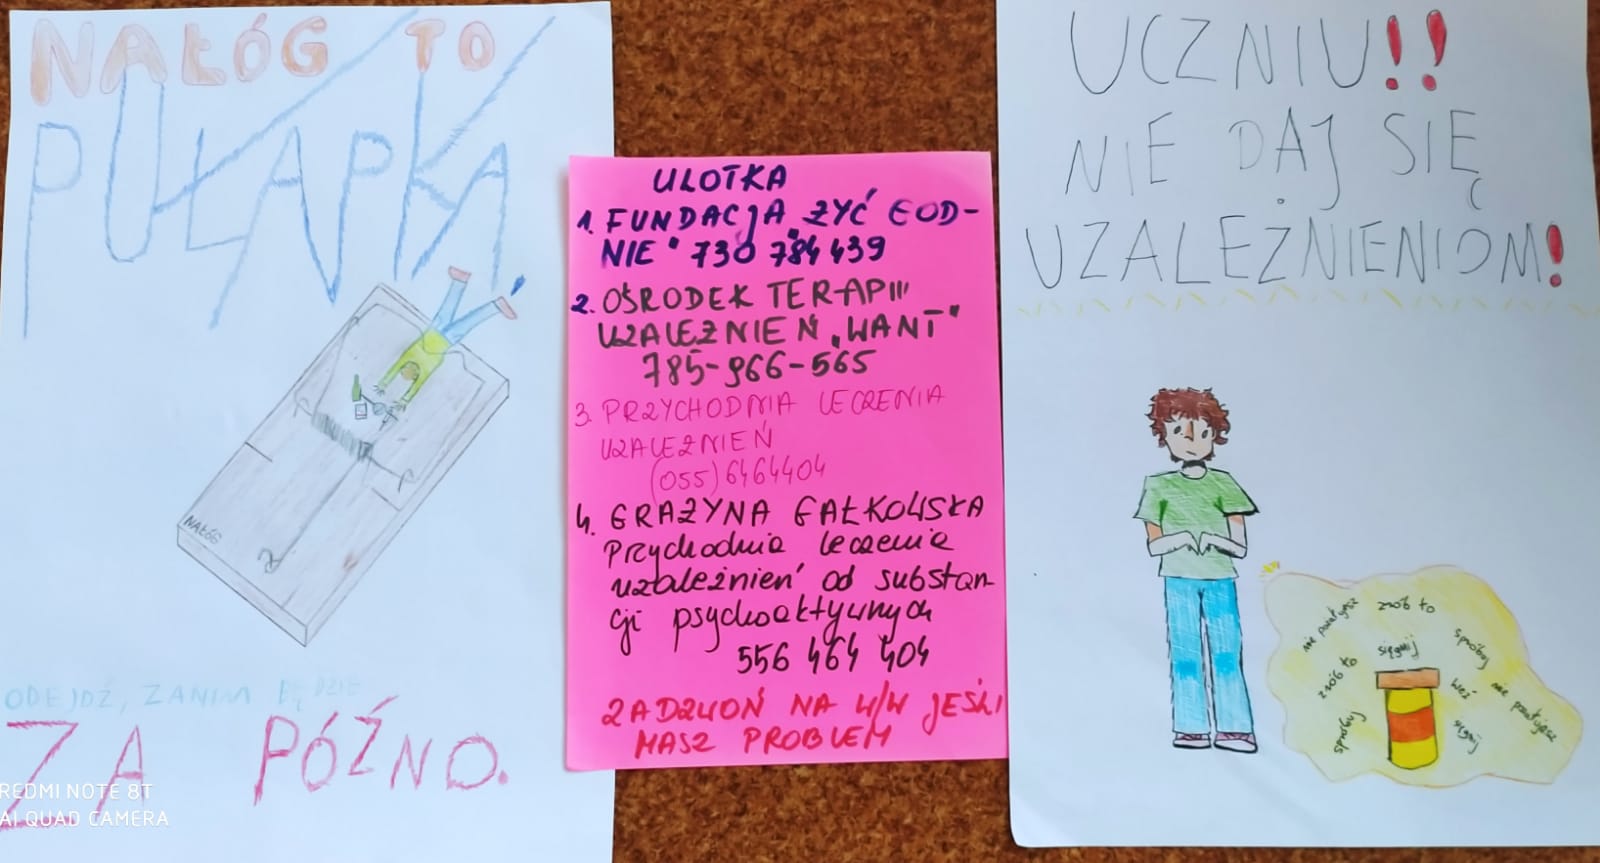 NAŁÓG TO
PUŁAPKA
NAŁÓG
ODEJDŹ, ZANIM BĘDZIE
ZA PÓŹNO.
REDMI NOTE 8T
AI QUAD CAMERA
ULOTKA
1. FUNDACJA „ŻYĆ GOD-
NIE" 730 784 439
2. OŚRODEK TERAPII
UZALEŻNIEŃ „WANT"
785-966-565
3. PRZYCHODNIA LECZENIA
UZALEŻNIEŃ
(055) 6464404
4. GRAŻYNA GAŁKOWSKA
Przychodnia leczenia
uzależnień od substan-
cji psychoaktywnych
556 464 404
ZADZWOŃ NA W/W JEŚLI
MASZ PROBLEM
UCZNIU!!
NIE DAJ SIĘ
UZALEŻNIENIOM!
nie pożałujesz
zrób to
spróbuj
sięgnij
zrób to
weź
nie pożałujesz
spróbuj
sięgnij